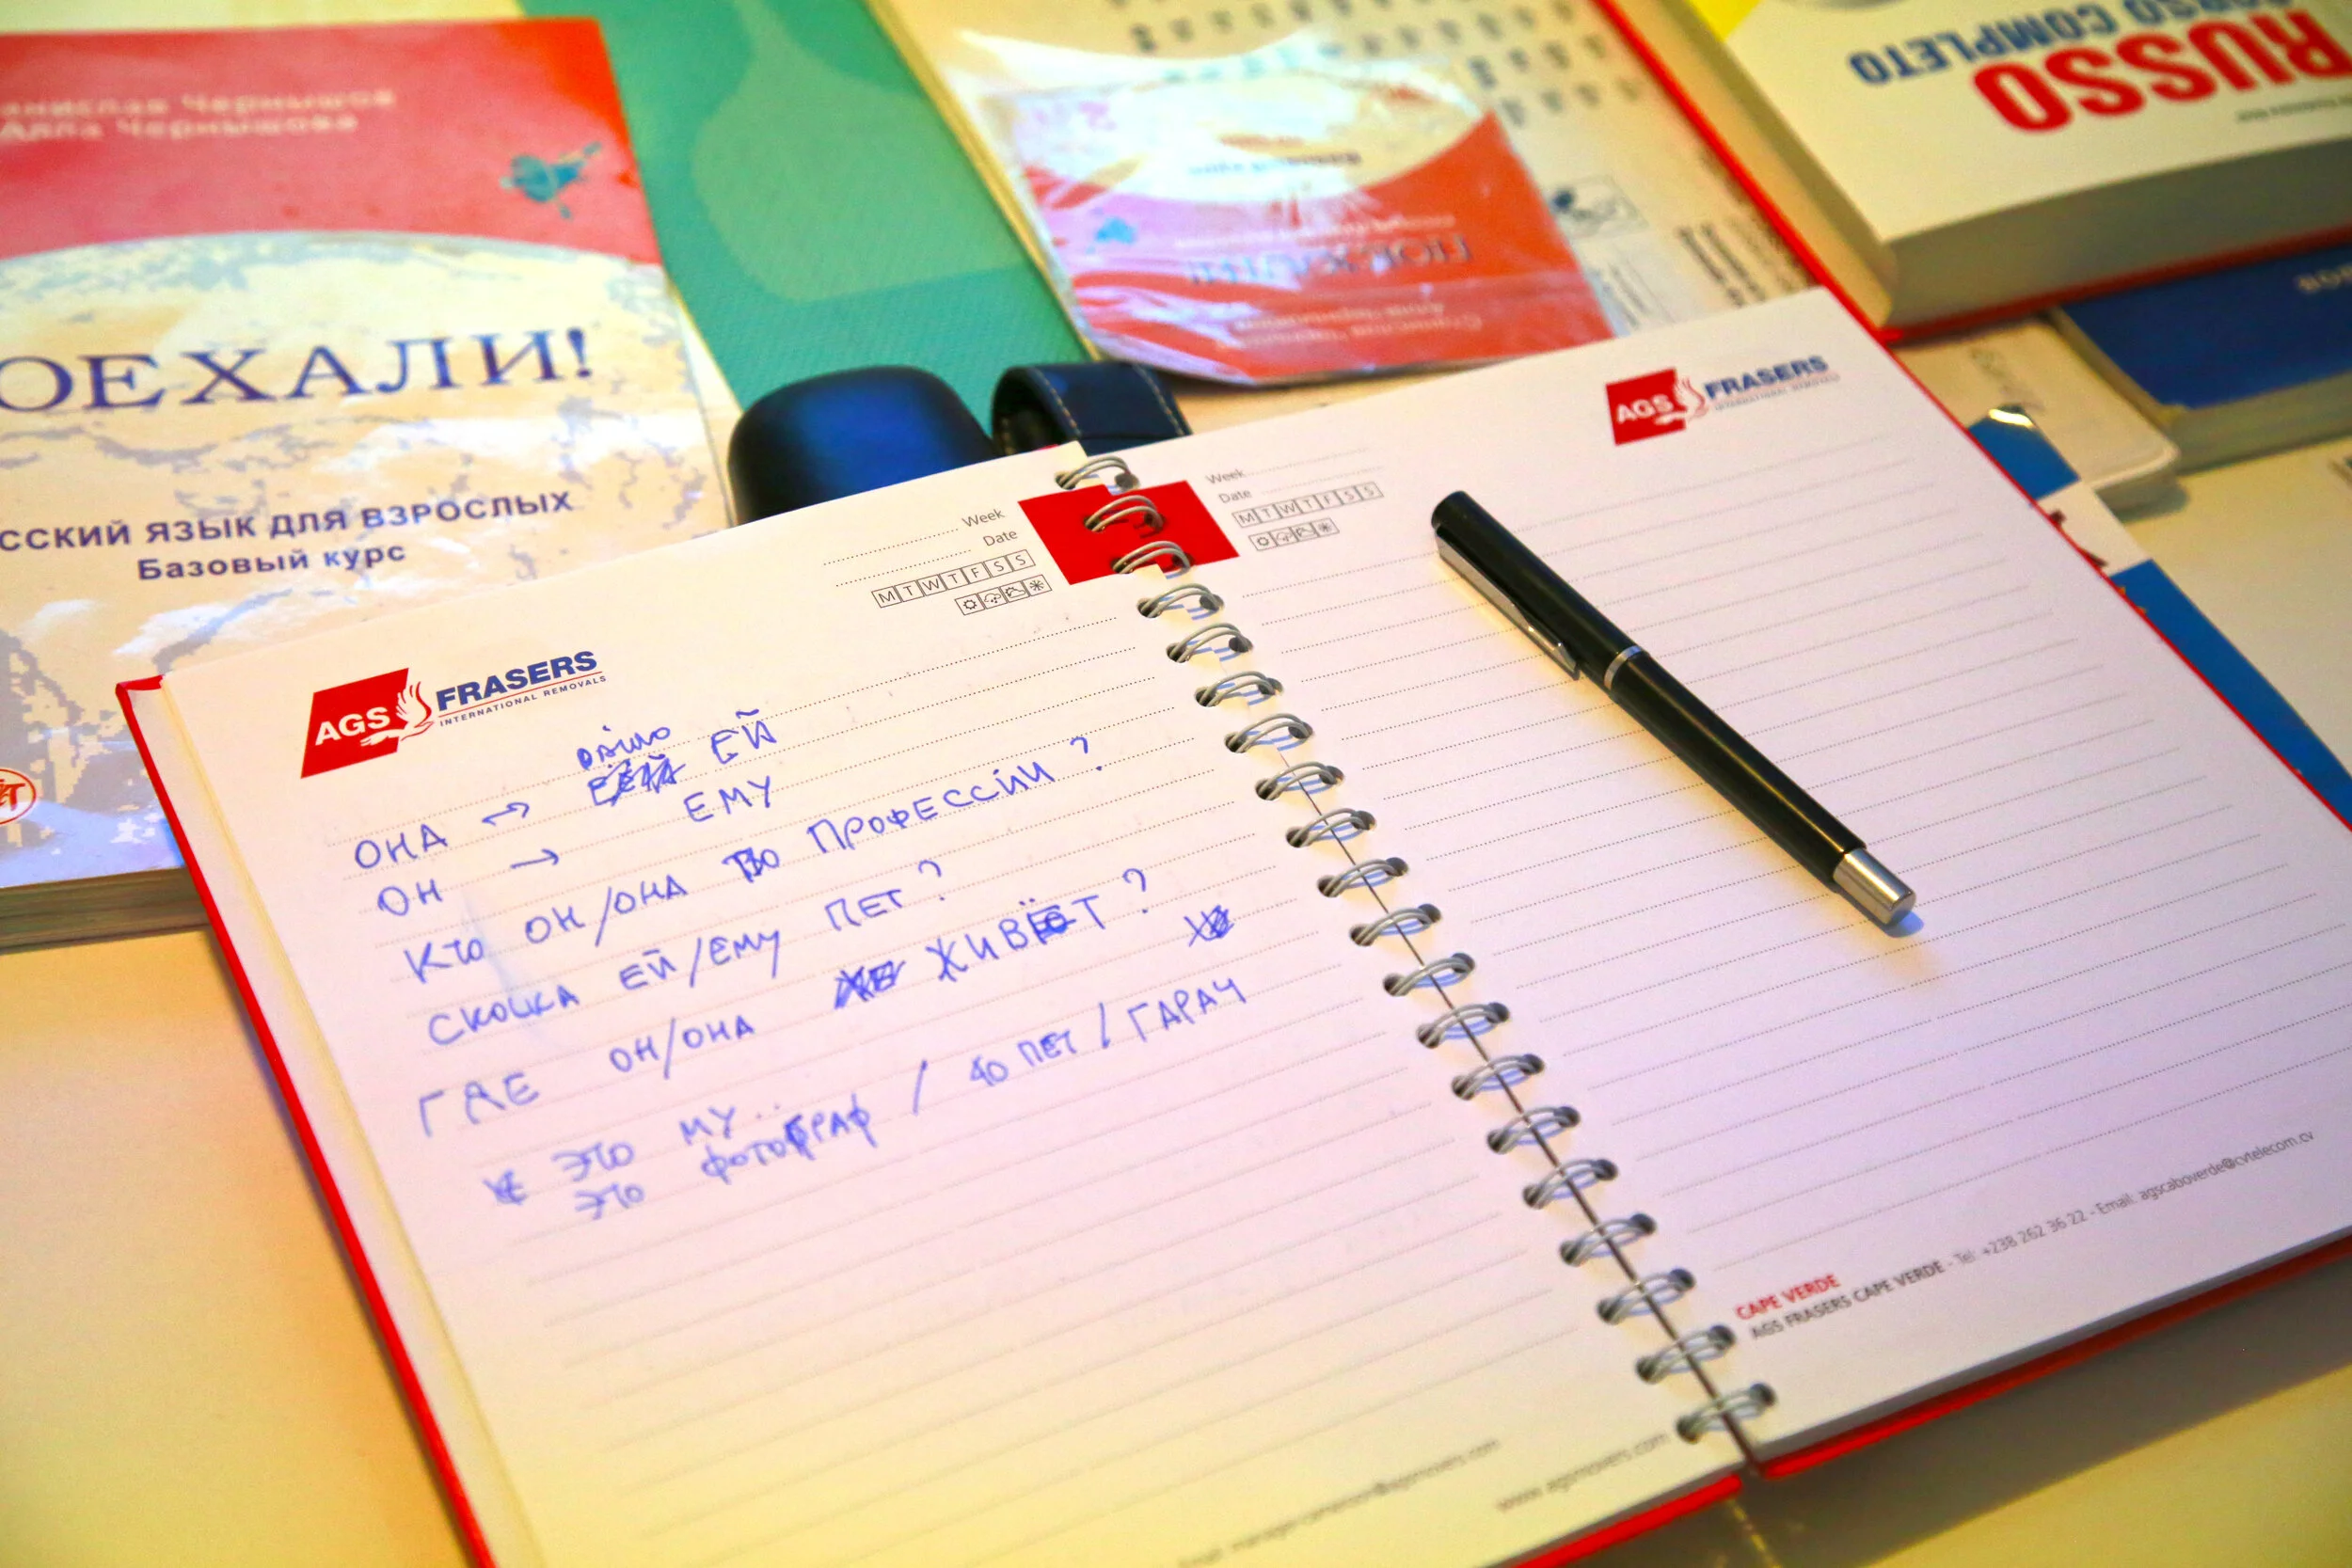 Чернышов
Алла Чернышова
ОЕХАЛИ!
ССКИЙ ЯЗЫК ДЛЯ ВЗРОСЛЫХ
Базовый курс
ПОЕХАЛИ!
RUSSO
CORSO COMPLETO
Week
Date
M T W T F S S
AGS FRASERS
INTERNATIONAL REMOVALS
ОНА → ЕЙ
ОН → ЕМУ
КТО ОН/ОНА ПО ПРОФЕССИИ?
СКОЦКА ЕЙ/ЕМУ ПЕТ?
ГДЕ ОН/ОНА ЖИВЁТ?
ЭТО МУ..
ЭТО ФОТОГРАФ / 40 ПЕТ / ГАРАЧ
www.agsmovers.com
Week
Date
M T W T F S S
AGS FRASERS
INTERNATIONAL REMOVALS
CAPE VERDE
AGS FRASERS CAPE VERDE - Tel: +238 262 36 22 - Email: agscaboverde@cvtelecom.cv